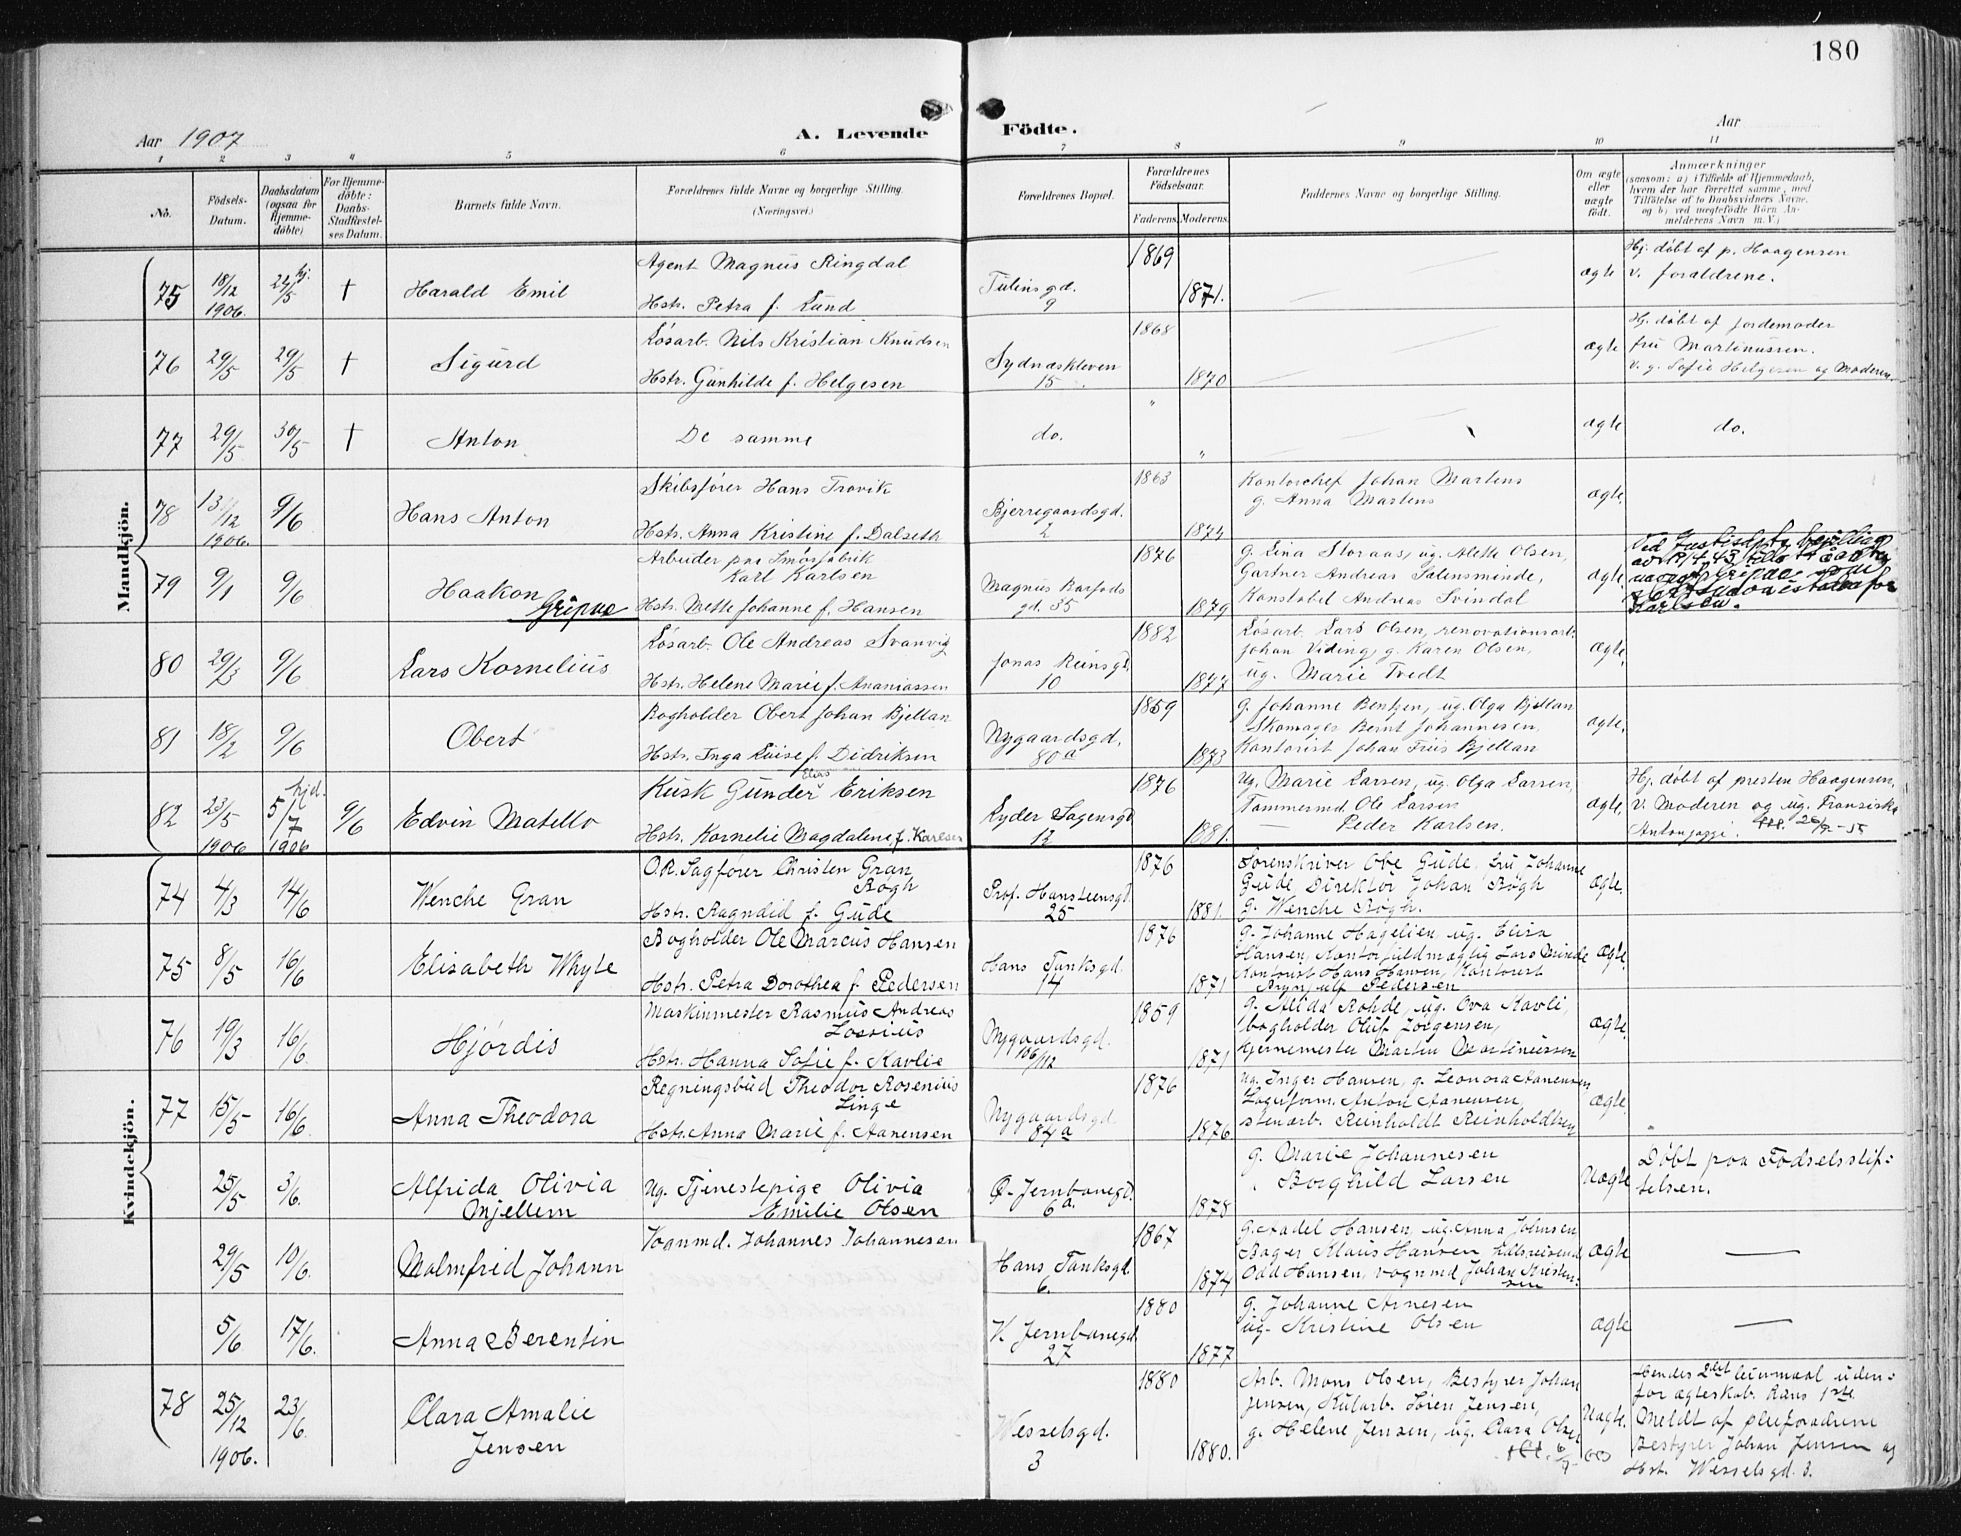 180
Aar 1907
A. Levende Födte.
Aar
1 2 3 4 5 6 7 8 9 10 11
No.
Födsels-Datum.
Daabsdatum (ogsaa for Hjemme-döbte)
For Hjemme-döbte: Daabs-Stadfæstel-ses Datum.
Barnets fulde Navn.
Forældrenes fulde Navne og borgerlige Stilling. (Næringsvei.)
Forældrenes Bopæl.
Forældrenes Födselsaar.
Faderens. Moderens.
Faddernes Navne og borgerlige Stilling.
Om ægte eller uægte födt.
Anmærkninger
(saasom: a) i Tilfælde af Hjemmedaab,
hvem der har forrettet samme, med
Tilföielse af to Daabsvidners Navne,
og b) ved uægtefödte Börn An-
melderens Navn m. V.)
Mandkjön.
75 18/12 1906. 24/5 hj. † Harald Emil
Agent Magnus Ringdal
Hstr. Petra f. Lund
Tulinsgd. 9
1869 1871.
ægte
Hj. døbt af p. Haagensen
v. forældrene.
76 29/5 29/5 † Sigurd
Løsarb. Nils Kristian Knudsen
Hstr. Gunhilde f. Helgesen
Sydnæskleven 15
1868 1870
ægte
Hj. døbt af jordemoder
fru Martinussen.
v. g. Sofie Helgesen og Moderen.
77 29/5 30/5 † Anton
De samme
do.
" "
ægte
do.
78 13/12 1906. 9/6 Hans Anton
Skibsfører Hans Trovik
Hstr. Anna Kristine f. Dalseth
Bjerregaardsgd. 2
1863 1874
Kontorchef Johan Martens
g. Anna Martens
ægte.
79 9/1 9/6 Haakon Gripne
Arbeider paa Smørfabrik
Karl Karlsen
Hstr. Mette Johanne f. Hansen
Magnus Barfods gd. 35
1876 1879
g. Lina Storaas, ug. Aletta Olsen,
Gartner Andreas Salensminde,
Konstabel Andreas Svindal
ægte
Karlsen.
80 29/3 9/6 Lars Kornelius
Løsarb. Ole Andreas Svanvig
Hstr. Helene Marie f. Ananiassen
Jonas Reinsgd. 10
1882 1877
Løsarb. Lars Olsen, renovationsarb.
Johan Viding, g. Karen Olsen,
ug. Marie Tvedt
ægte.
81 18/2 9/6 Obert
Bogholder Obert Johan Bjellan
Hstr. Inga Luise f. Didriksen
Nygaardsgd. 80a
1859 1873
g. Johanne Bentzen, ug. Olga Bjellan
Skomager Bernt Johannesen,
Kontorist Johan Friis Bjellan
ægte.
82 23/5 1906 5/7 1906 hjd. 9/6 Edvin Matello
Kusk Gunder Elias Eriksen
Hstr. Kornelie Magdalene, f. Karlsen
Eyder Sagensgd 12
1876 1881.
ug. Marie Larsen, ug. Olga Larsen,
Tømmermd. Ole Larsen
— Peder Karlsen.
ægte.
Hj. døbt af presten Haagensen,
v. Moderen og ug. Fransiska
Kvindekjön.
74 4/3 14/6 Wenche Gran
O.R. Sagfører Christen Gran Bøgh
Hstr. Ragndid f. Gude
Prof. Hansteensgd. 25
1876 1881.
Sorenskriver Ove Gude, fru Johanne
Gude, Direktør Johan Bøgh
g. Wenche Bøgh.
ægte.
75 8/5 16/6 Elisabeth Whyte
Bogholder Ole Marcus Hansen
Hstr. Petra Dorothea f. Pedersen
Hans Tanksgd. 14
1876 1871
g. Johanne Hagelien, ug. Elisa
Hansen, Kontorfuldmægtig Lars Minde
Kontorist Hans Hansen, Kontorist
Brynjulf Pedersen
ægte.
76 19/3 16/6. Hjørdis
Maskinmester Rasmus Andreas Lossius
Hstr. Hanna Sofie f. Kavlie
Nygaardsgd. 106/112
1859 1871
g. Alida Rohde, ug. Ova Kavli,
bogholder Oluf Jørgensen,
Hjernemester Martin Martinussen
ægte.
77 15/5 16/6. Anna Theodora
Regningsbud Theodor Rosenius Linge
Hstr. Anna Marie f. Aanensen
Nygaardsgd. 84a
1876 1876.
ug. Inger Hansen, g. Leonora Aanensen,
Lagerform. Anton Aanensen,
stenarb. Reinholdt Reinholdtsen
ægte.
25/5 3/6. Alfrida Olivia Mjellem
Ug. Tjenestepige Olivia Emilie Olsen
Ø. Jernbanegd. 6a.
1878
g. Marie Johannesen
Borghild Larsen
Uægte
Døbt paa Fødselsstif-
telsen.
29/5 10/6. Malmfrid Johann
Vognmd. Johannes Johannesen
Hans Tanksgd. 6.
1867 1874
g. Aadel Hansen, ug. Anna Johnsen
Bager Klaus Hansen, hdlsreisend
Odd Hansen, vognmd Johan Kristen-
sen
ægte
—
5/6 17/6. Anna Berentin
K. Jernbanegd. 27
1880 1877
g. Johanne Arnesen
ug. Kristine Olsen
ægte
—
78 25/12 1906. 23/6. Clara Amalie Jensen
Wesselsgd. 3
1880 1880.
Arb. Mons Olsen, Bestyrer Johan
Jensen, Kularb. Søren Jensen,
g. Helene Jensen, ug. Clara Olsen
Uægte.
Hendes 2det leiermaal uden-
for ægteskab. Hans 1ste.
Meldt af pleiforældrene
Bestyrer Johan Jensen og
Hst. Wesselsgd. 3.